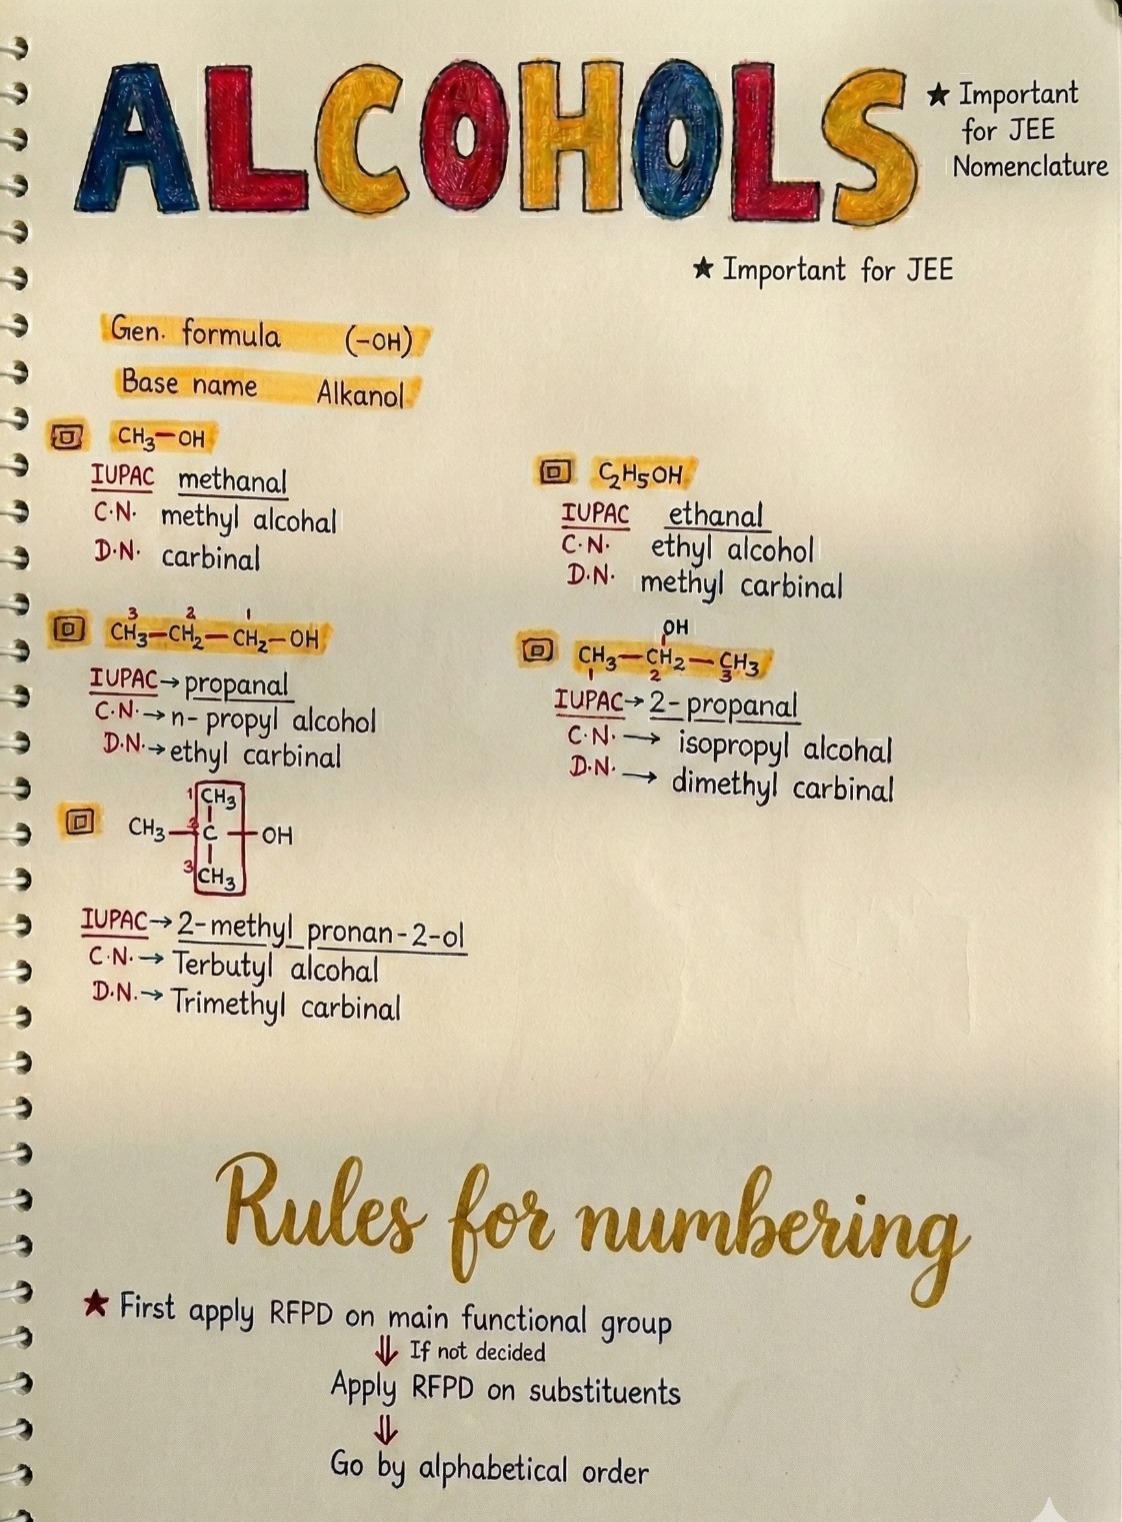 ALCOHOLS
★ Important
for JEE
Nomenclature
★ Important for JEE
Gen. formula (-OH)
Base name Alkanol
CH₃-OH
IUPAC methanal
C.N. methyl alcohal
D.N. carbinal
C₂H₅OH
IUPAC ethanal
C.N. ethyl alcohol
D.N. methyl carbinal
3 2 1
CH₃-CH₂-CH₂-OH
IUPAC→propanal
C.N.→n-propyl alcohol
D.N.→ethyl carbinal
OH
CH₃-CH₂-CH₃
1 2 3
IUPAC→2-propanal
C.N.→isopropyl alcohal
D.N.→dimethyl carbinal
1 CH₃
CH₃-2 C-OH
3 CH₃
IUPAC→2-methyl pronan-2-ol
C.N.→Terbutyl alcohal
D.N.→Trimethyl carbinal
Rules for numbering
★ First apply RFPD on main functional group
⇓ If not decided
Apply RFPD on substituents
⇓
Go by alphabetical order